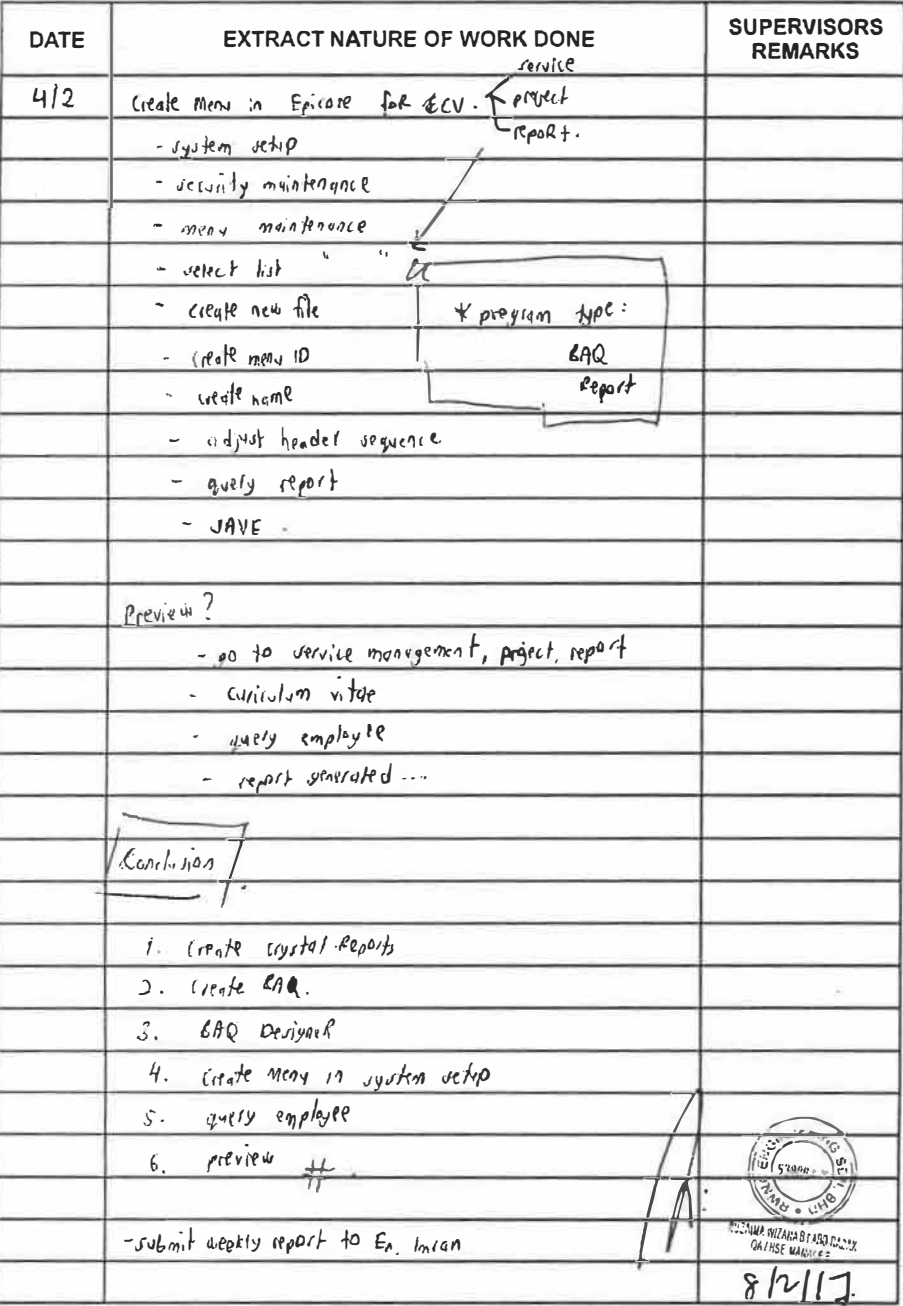 DATE
EXTRACT NATURE OF WORK DONE
SUPERVISORS REMARKS
4/2
Create Menu in Epicore for ECV.
service
project
report.
- system setup
- security maintenance
- menu maintenance
- select list " "
- create new file
- create menu ID
- create name
- adjust header sequence
- query report
- SAVE.
* program type:
BAQ
Report
Preview?
- go to service management, project, report
- curiculum vitae
- query employee
- report generated ....
Conclusion
1. Create crystal Reports
2. Create BAQ.
3. BAQ Designer
4. Create Menu in system setup
5. query employee
6. preview #
- submit weekly report to En. Imran
QA/HSE MANAGER
8/2/17.